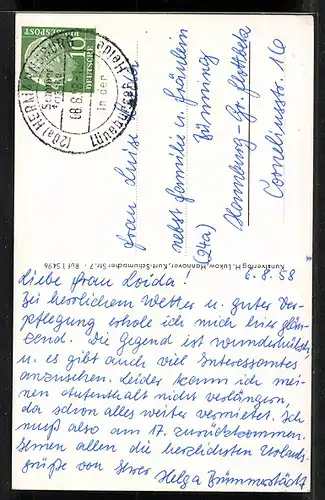 10
DEUTSCHE
BUNDESPOST
(20a) HERMANNSBURG
Lüneburger Heide
in der
08.8.58
Frau Luise
nebst Familie u. Fräulein
(24a)
Hamburg-Gr. Flottbek
Corneliusstr. 16
Kunstverlag H. Lukow, Hannover, Kurt-Schumacher Str. 7, - Ruf 1 54 96
6.8.58
Liebe Frau Loida!
Bei herrlichem Wetter u. guter Ver-
pflegung erhole ich mich hier glän-
zend. Die Gegend ist wunderhübsch
u. es gibt auch viel Interessantes
anzusehen. Leider kann ich mei-
nen Aufenthalt nicht verlängern,
da schon alles weiter vermietet. Ich
muß also am 17. zurückkommen.
Ihnen allen die herzlichsten Urlaubs-
grüße von Ihrer Helga